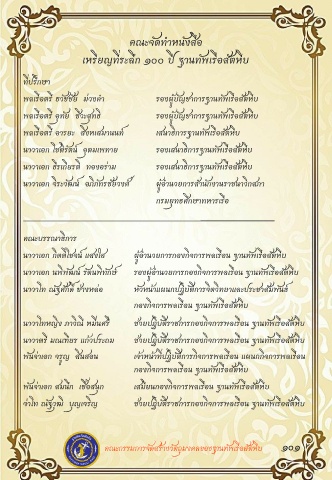 คณะจัดทำหนังสือ
เหรียญที่ระลึก ๑๐๐ ปี ฐานทัพเรือสัตหีบ
ที่ปรึกษา
พลเรือตรี ธาซีชัย ม่วงคำ รองผู้บัญชาการฐานทัพเรือสัตหีบ
พลเรือตรี อุทัย ชีวะสุทธิ รองผู้บัญชาการฐานทัพเรือสัตหีบ
พลเรือตรี อารยะ เสนาธิการฐานทัพเรือสัตหีบ
นาวาเอก โชติรัตน์ อุดมเพทาย รองเสนาธิการฐานทัพเรือสัตหีบ
นาวาเอก ทองอร่าม รองเสนาธิการฐานทัพเรือสัตหีบ
นาวาเอก จิระวัฒน์ ผู้อำนวยการสำนักงานราชนาวิกสภา
กรมยุทธศึกษาทหารเรือ
คณะบรรณาธิการ
นาวาเอก แสงใส ผู้อำนวยการกองกิจการพลเรือน ฐานทัพเรือสัตหีบ
นาวาเอก นพพัฒน์ รัตนพิทักษ์ รองผู้อำนวยการกองกิจการพลเรือน ฐานทัพเรือสัตหีบ
นาวาโท ณัฐศักดิ์ ช่างหล่อ หัวหน้าแผนกปฏิบัติการจิตวิทยาและประชาสัมพันธ์
กองกิจการพลเรือน ฐานทัพเรือสัตหีบ
นาวาโทหญิง ภาวิณี หมื่นศรี ช่วยปฏิบัติราชการกองกิจการพลเรือน ฐานทัพเรือสัตหีบ
นาวาตรี แก้วประถม ช่วยปฏิบัติราชการกองกิจการพลเรือน ฐานทัพเรือสัตหีบ
พันจ่าเอก จรูญ เจ้าหน้าที่ปฏิบัติการกิจการพลเรือน แผนกกิจการพลเรือน
กองกิจการพลเรือน ฐานทัพเรือสัตหีบ
พันจ่าเอก สมนึก เชื้อสนุก เสมียนกองกิจการพลเรือน ฐานทัพเรือสัตหีบ
จ่าโท ณัฐวุฒิ บุญเจริญ ช่วยปฏิบัติราชการกองกิจการพลเรือน ฐานทัพเรือสัตหีบ
คณะกรรมการจัดสร้างวัตถุมงคลของฐานทัพเรือสัตหีบ ๑๐๑